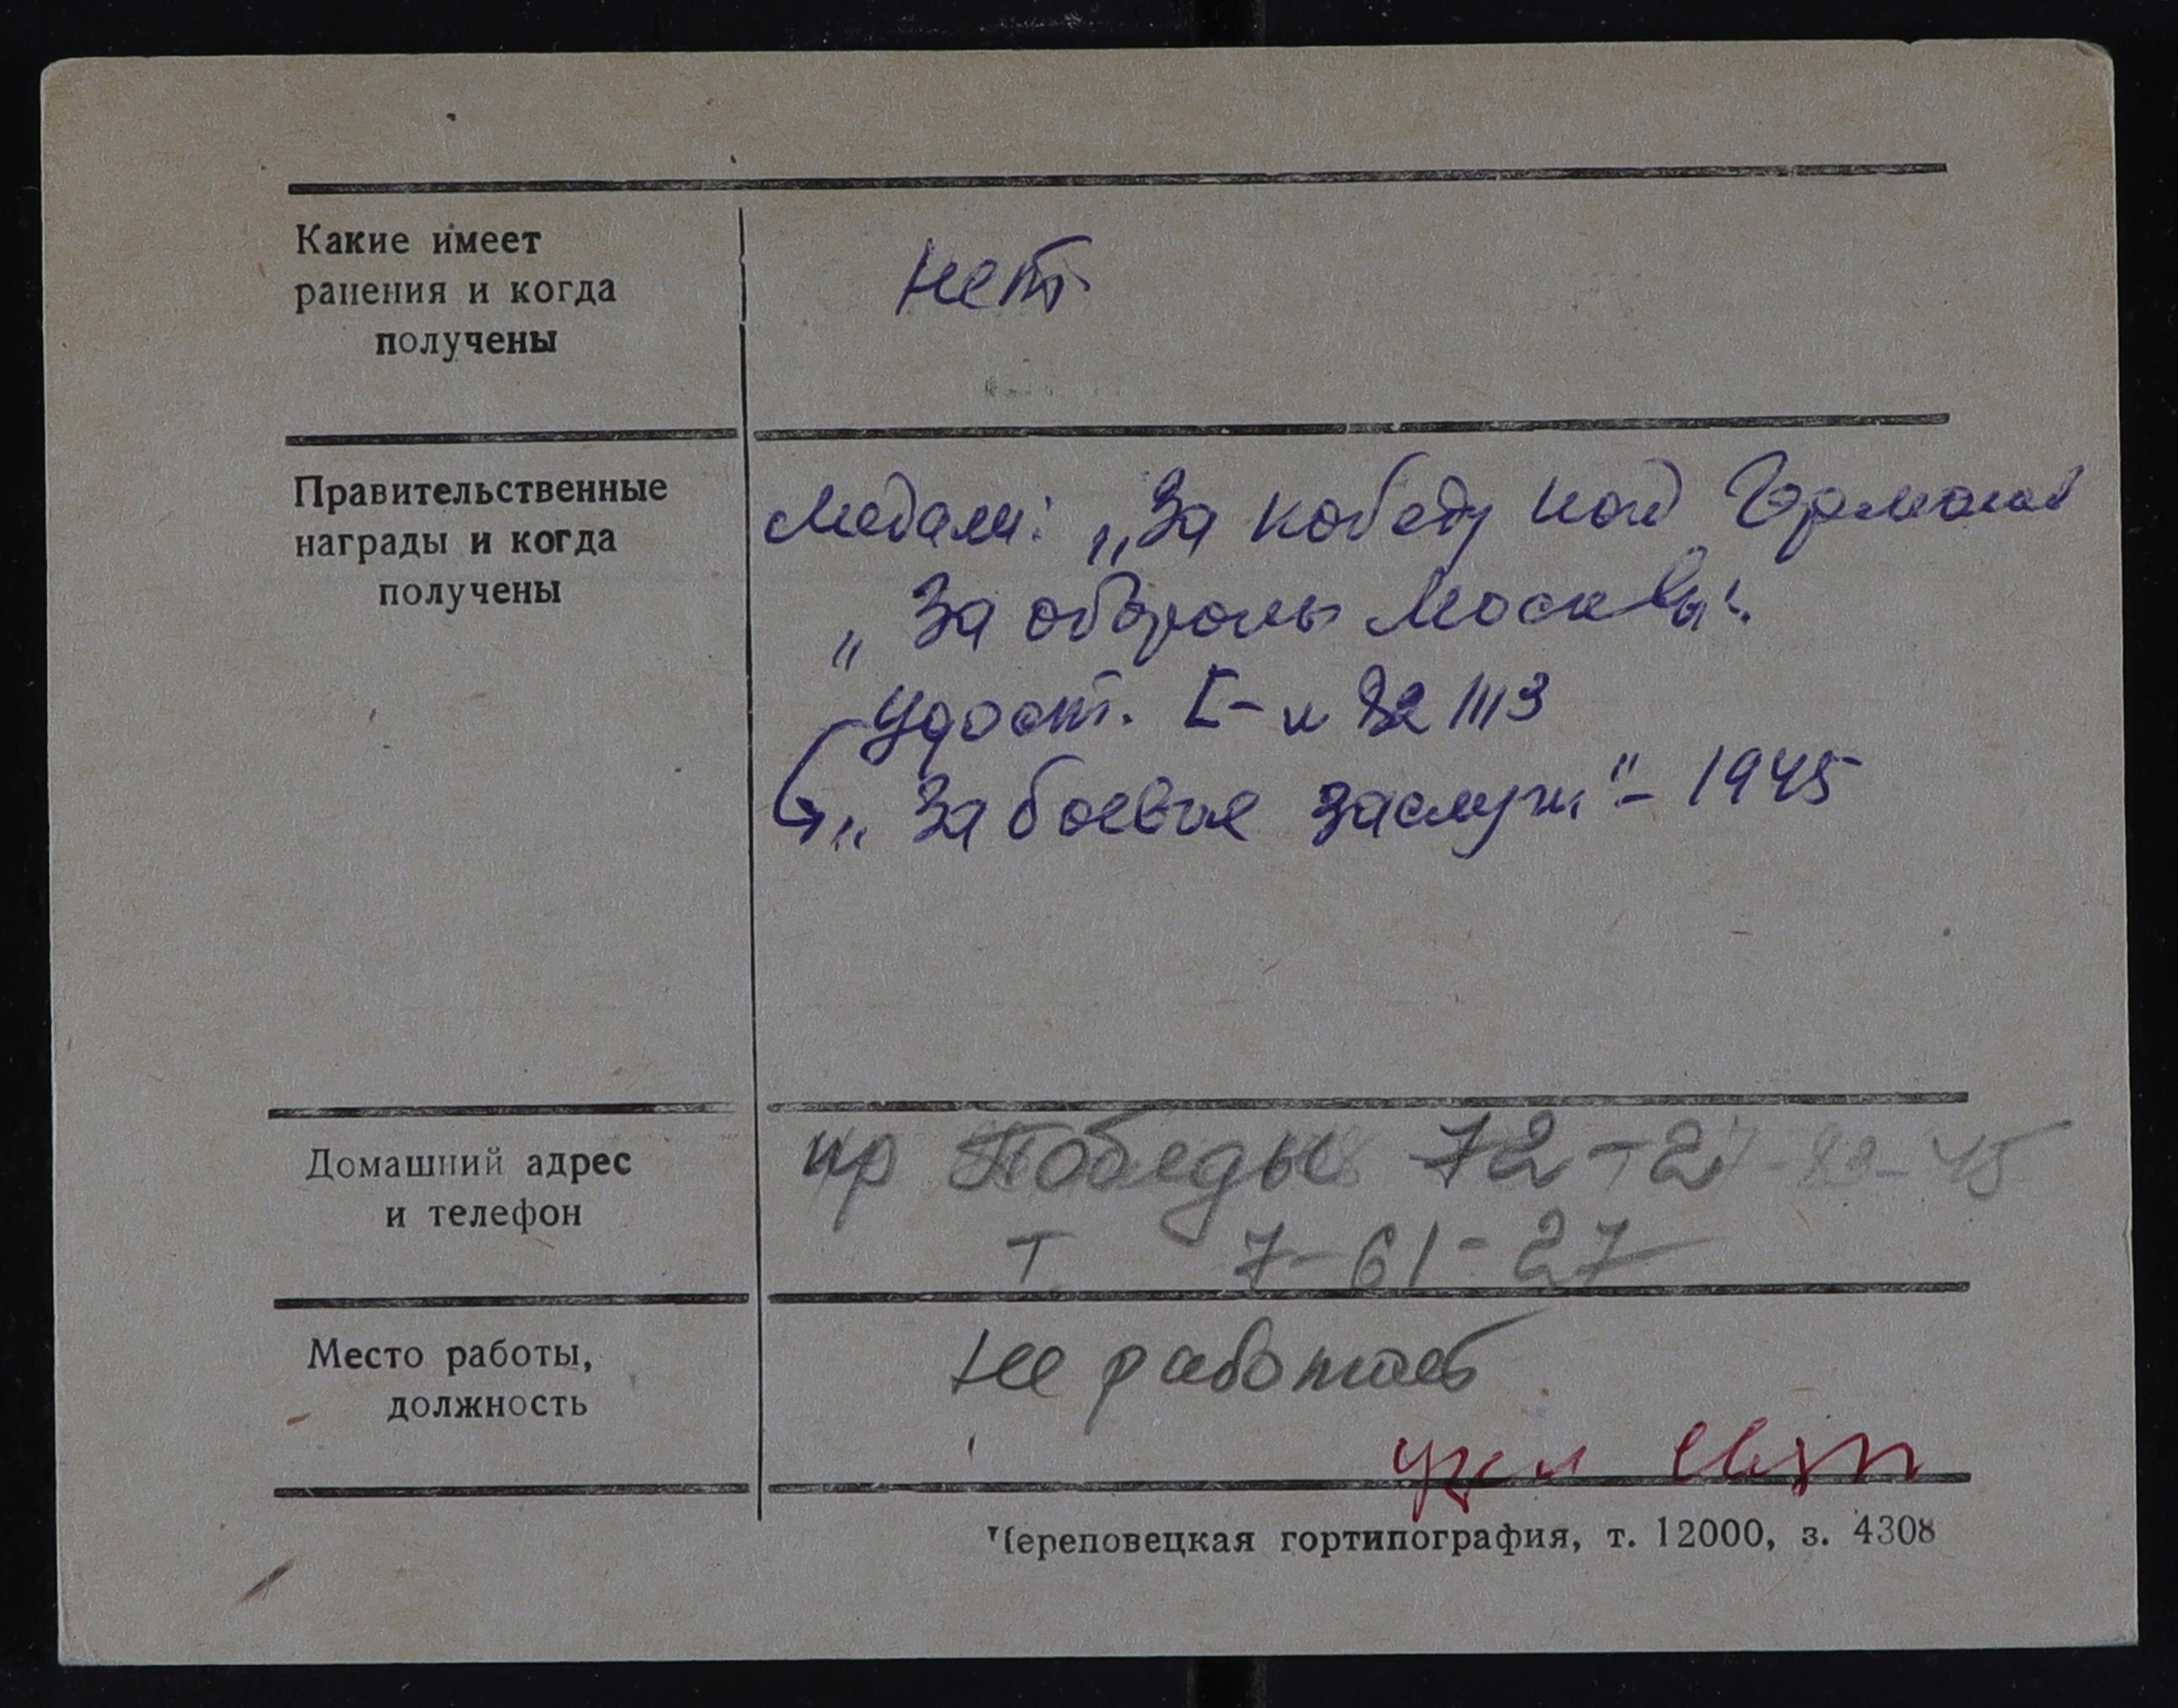 Какие имеет
ранения и когда
получены
нет
Правительственные
награды и когда
получены
Медали: „За победу над Германией
„За обороны Москвы".
Удост.
„За боевые заслуги" - 1945
Домашний адрес
и телефон
пр Победы 72-2
т. 7-61-27
Место работы,
должность
не работает
узел связи
Череповецкая гортипография, т. 12000, з. 4308